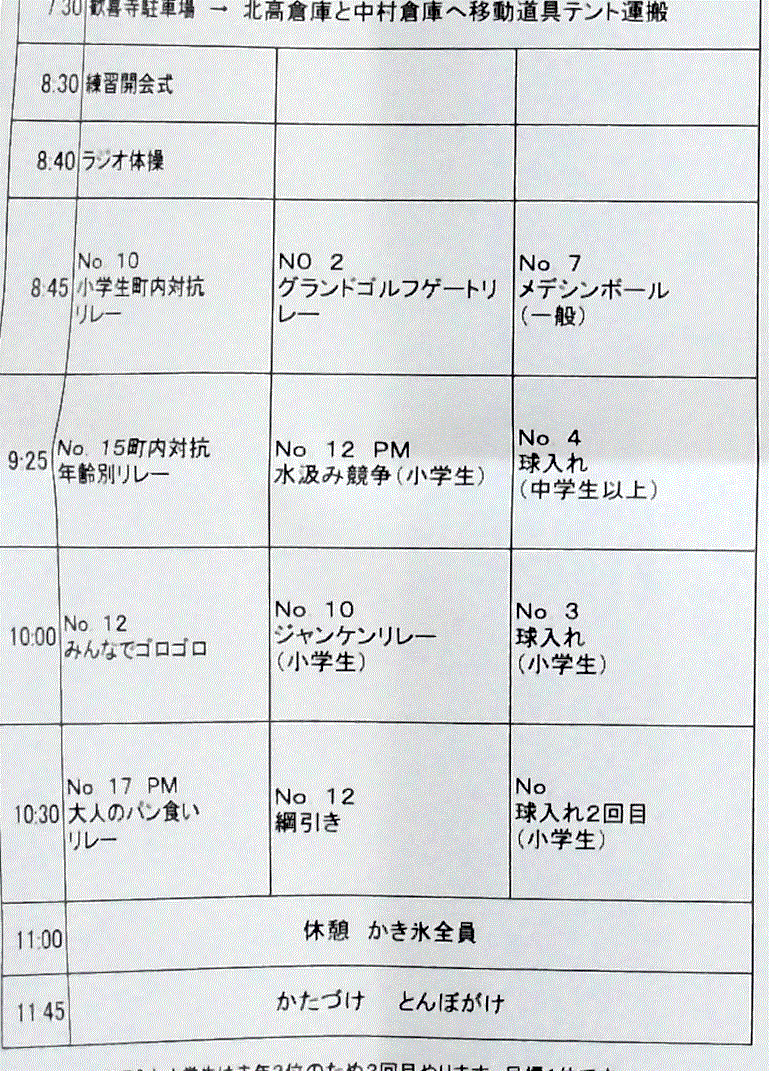 7:30 歓喜寺駐車場 → 北高倉庫と中村倉庫へ移動道具テント運搬
8:30 練習開会式
8:40 ラジオ体操
8:45
No 10
小学生町内対抗
リレー
NO 2
グランドゴルフゲートリ
レー
No 7
メデシンボール
(一般)
9:25
No. 15町内対抗
年齢別リレー
No 12 PM
水汲み競争(小学生)
No 4
球入れ
(中学生以上)
10:00
No 12
みんなでゴロゴロ
No 10
ジャンケンリレー
(小学生)
No 3
球入れ
(小学生)
10:30
No 17 PM
大人のパン食い
リレー
No 12
綱引き
No
球入れ2回目
(小学生)
11:00 休憩 かき氷全員
11 45 かたづけ とんぼがけ